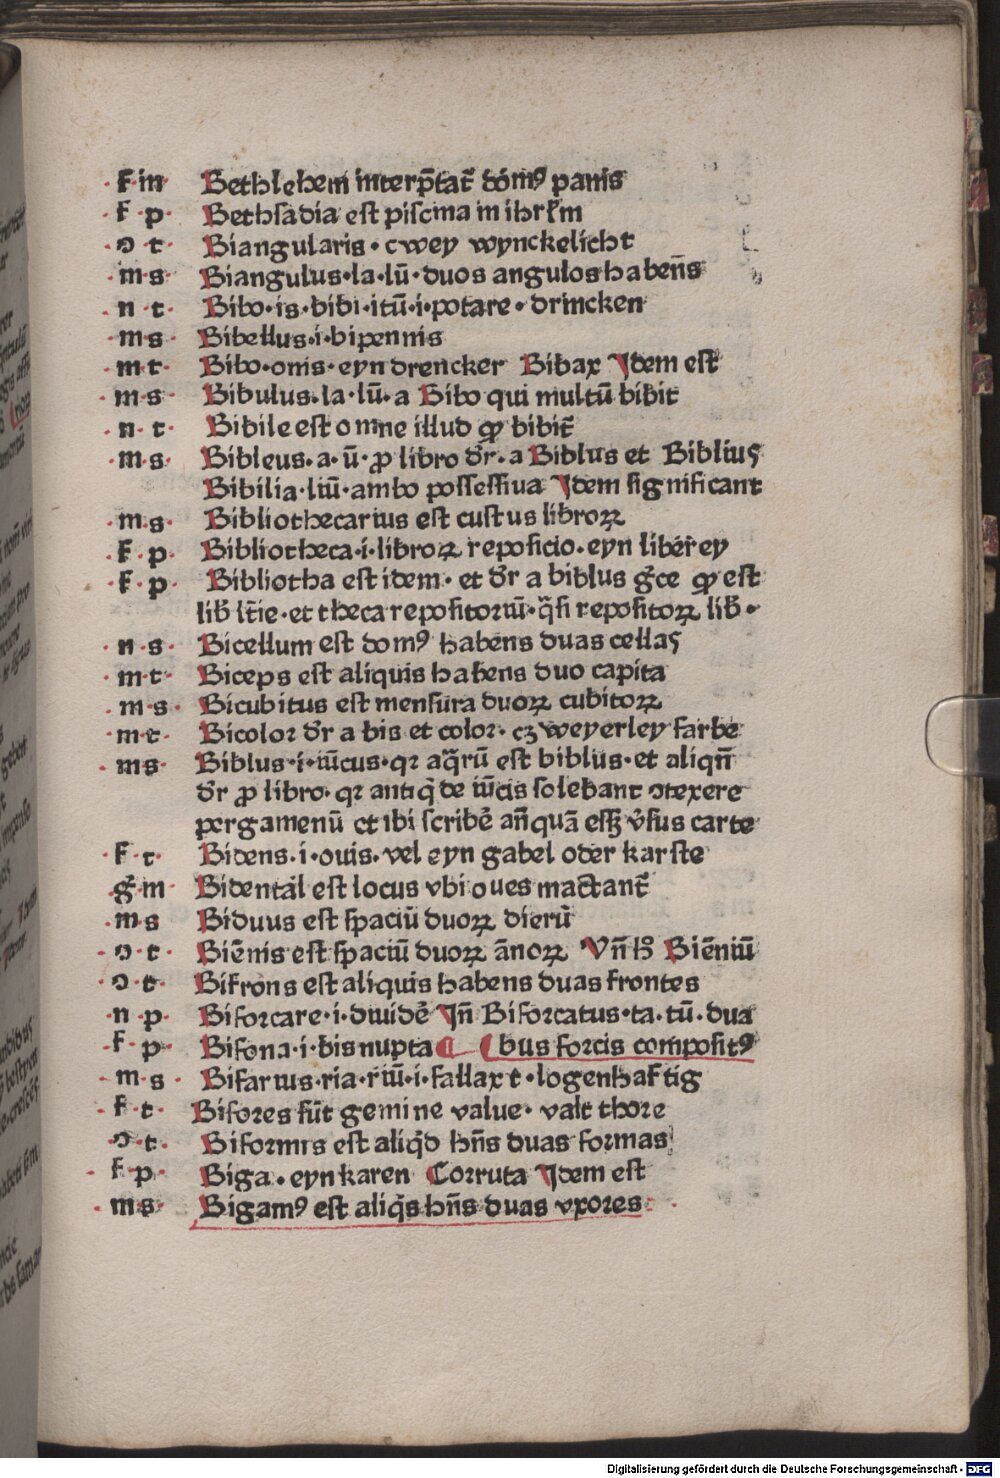 f in Bethlehem interp̄tat᷒ dom⁹ panis
f p Bethsadia est piscina in ihrl̄m
ɔ t Biangularis · cwey wynckelicht
m s Biangulus·la·lū·duos angulos habēs
n t Bibo·is·bibi·itū·i·potare·drincken
m s Bibellus·i·bipennis
m t Bibo·onis·eyn drencker Bibax Jdem est
m s Bibulus·la·lū·a Bibo qui multū bibit
n t Bibile est omne illud qɔ bibit᷒
m s Bibleus·a·ū·ꝓ libro dr̄·a Biblus et Biblius
Bibilia·liū·ambo possessiua Jdem significant
m s Bibliothecarius est custus libroꝝ
f p Bibliotheca·i·libroꝝ reposicio·eyn liberey
f p Bibliotha est idem·et dr̄ a biblus gr̄ce qɔ est
lib̄ lr̄ie·et theca repositoriū·q̄si repositoꝝ lib̄·
n s Bicellum est dom⁹ habens duas cellas
m t Biceps est aliquis habens duo capita
m s Bicubitus est mensura duoꝝ cubitoꝝ
m t Bicolor dr̄ a bis et color·czweyerley farbe
m s Biblus·i·iūcus·qꝛ aq̄rū est biblus·et aliqn̄
dr̄ ꝓ libro·qꝛ antiq̇ de iūcis solebant ɔtexere
pergamenū et ibi scribē an̄quā essꝫ v̄sus carte
f t Bidens·i·ouis·vel eyn gabel oder karste
g̊ m Bidental est locus vbi oues mactant᷒
m s Biduus est spaciū duoꝝ dierū
ɔ t Biēnis est spaciū duoꝝ ānoꝝ Vn̄ hꝰ Biēniū
ɔ t Bifrons est aliquis habens duas frontes
n p Biforcare·i·diuidē Jn̄ Biforcatus·ta·tū·dua
f p Bifona·i·bis nupta ⸿ ( bus forcis composit⁹
m s Bifarius·ria·riū·i·fallax t·logenhaftig
f t Bifores sūt gemine value·valt thore
ɔ t Biformis est aliqd̄ hn̄s duas formas
f p Biga·eyn karen Corruta Jdem est
m s Bigam⁹ est aliq̇s hn̄s duas vxores
Digitalisierung gefördert durch die Deutsche Forschungsgemeinschaft - DFG